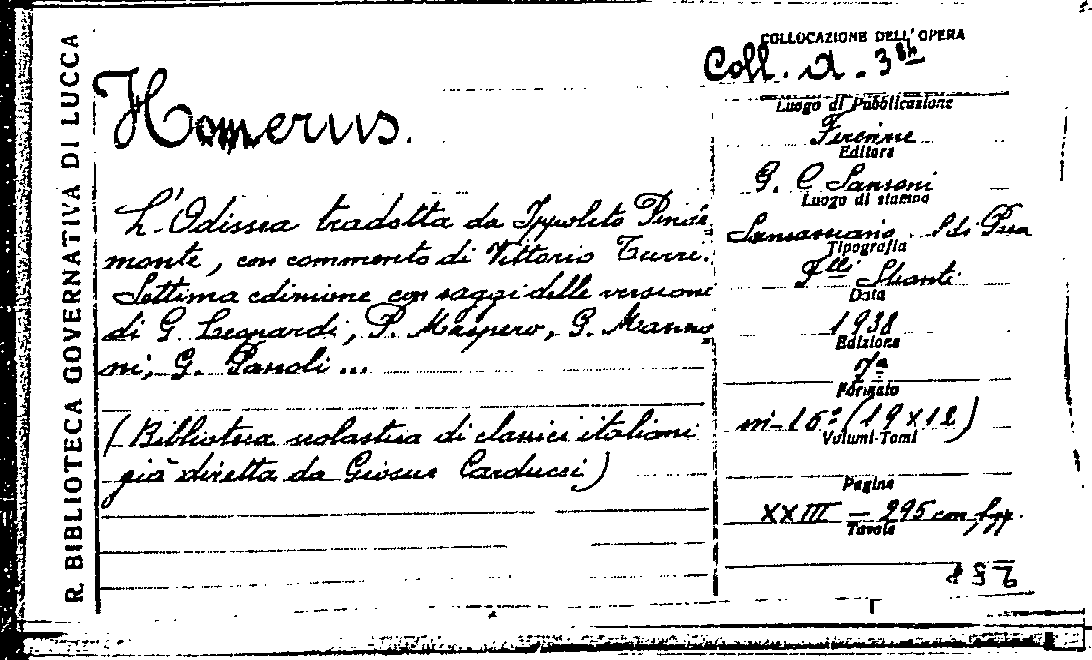 R. BIBLIOTECA GOVERNATIVA DI LUCCA
Homerus.
L'Odissea tradotta da Ippolito Pinde
monte, con commento di Vittorio Turri.
Settima edizione con saggi delle versioni
di G. Leopardi, P. Maspero, G. Mazzo
ni, G. Pascoli ...
(Biblioteca scolastica di classici italiani
già diretta da Giosue Carducci)
COLLOCAZIONE DELL'OPERA
Coll. A. 3
Luogo di Pubblicazione
Firenze
Editore
G. C Sansoni
Luogo di stampa
Sansasciano . Pisa
Tipografia
F.lli Stianti
Data
1938
Edizione
7ª
Formato
in-16° (19x12)
Volumi-Tomi
Pagine
XXIII – 295 con
Tavole